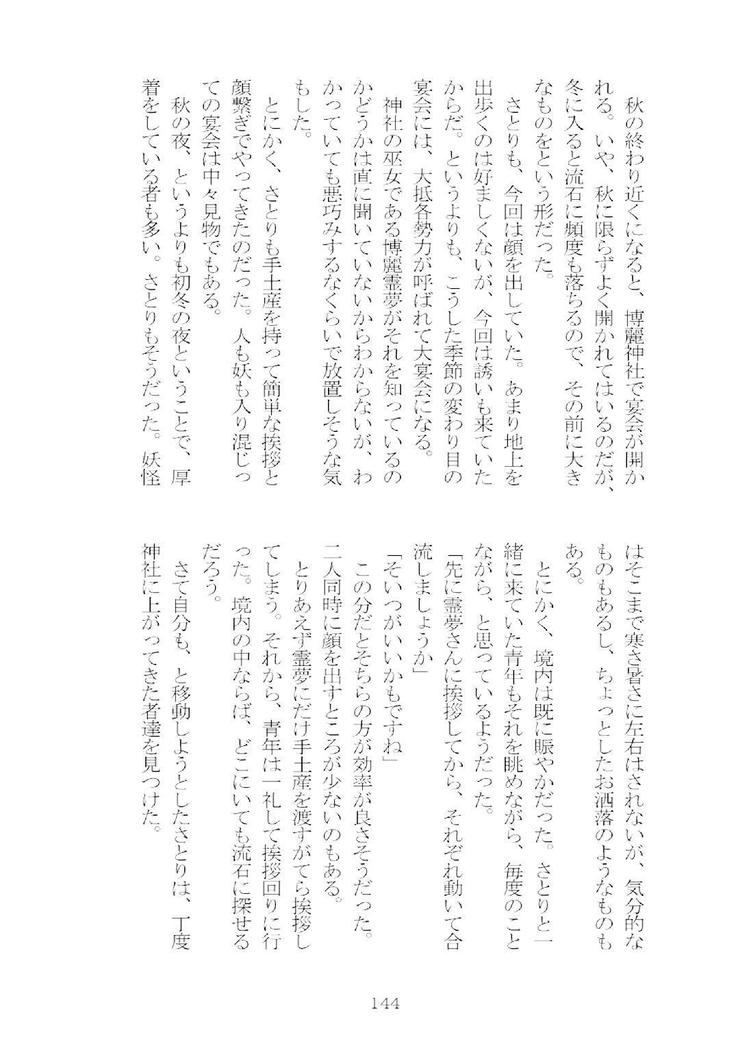 秋の終わり近くになると、博麗神社で宴会が開か
れる。いや、秋に限らずよく開かれてはいるのだが、
冬に入ると流石に頻度も落ちるので、その前に大き
なものをという形だった。
　さとりも、今回は顔を出していた。あまり地上を
出歩くのは好ましくないが、今回は誘いも来ていた
からだ。というよりも、こうした季節の変わり目の
宴会には、大抵各勢力が呼ばれて大宴会になる。
　神社の巫女である博麗霊夢がそれを知っているの
かどうかは直に聞いていないからわからないが、わ
かっていても悪巧みするなくらいで放置しそうな気
もした。
　とにかく、さとりも手土産を持って簡単な挨拶と
顔繋ぎでやってきたのだった。人も妖も入り混じっ
ての宴会は中々見物でもある。
　秋の夜、というよりも初冬の夜ということで、厚
着をしている者も多い。さとりもそうだった。妖怪
はそこまで寒さ暑さに左右はされないが、気分的な
ものもあるし、ちょっとしたお洒落のようなものも
ある。
　とにかく、境内は既に賑やかだった。さとりと一
緒に来ていた青年もそれを眺めながら、毎度のこと
ながら、と思っているようだった。
「先に霊夢さんに挨拶してから、それぞれ動いて合
流しましょうか」
「そいつがいいかもですね」
　この分だとそちらの方が効率が良さそうだった。
二人同時に顔を出すところが少ないのもある。
　とりあえず霊夢にだけ手土産を渡すがてら挨拶し
てしまう。それから、青年は一礼して挨拶回りに行
った。境内の中ならば、どこにいても流石に探せる
だろう。
　さて自分も、と移動しようとしたさとりは、丁度
神社に上がってきた者達を見つけた。
144